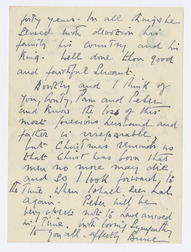 forty years. In all things he
served with devotion his
family, his country and his
King. Well done thou good
and faithful servant.
Dorothy and I think of
you, Pam and Peter
and know the loss of this
most precious husband and
father is irreparable,
but Christmas reminds us
that Christ was born that
men no more may die
and so I look forward to
the Time when I shall see him
again. Peter will be
very
in Time, with loving sympathy
to you all. affectly